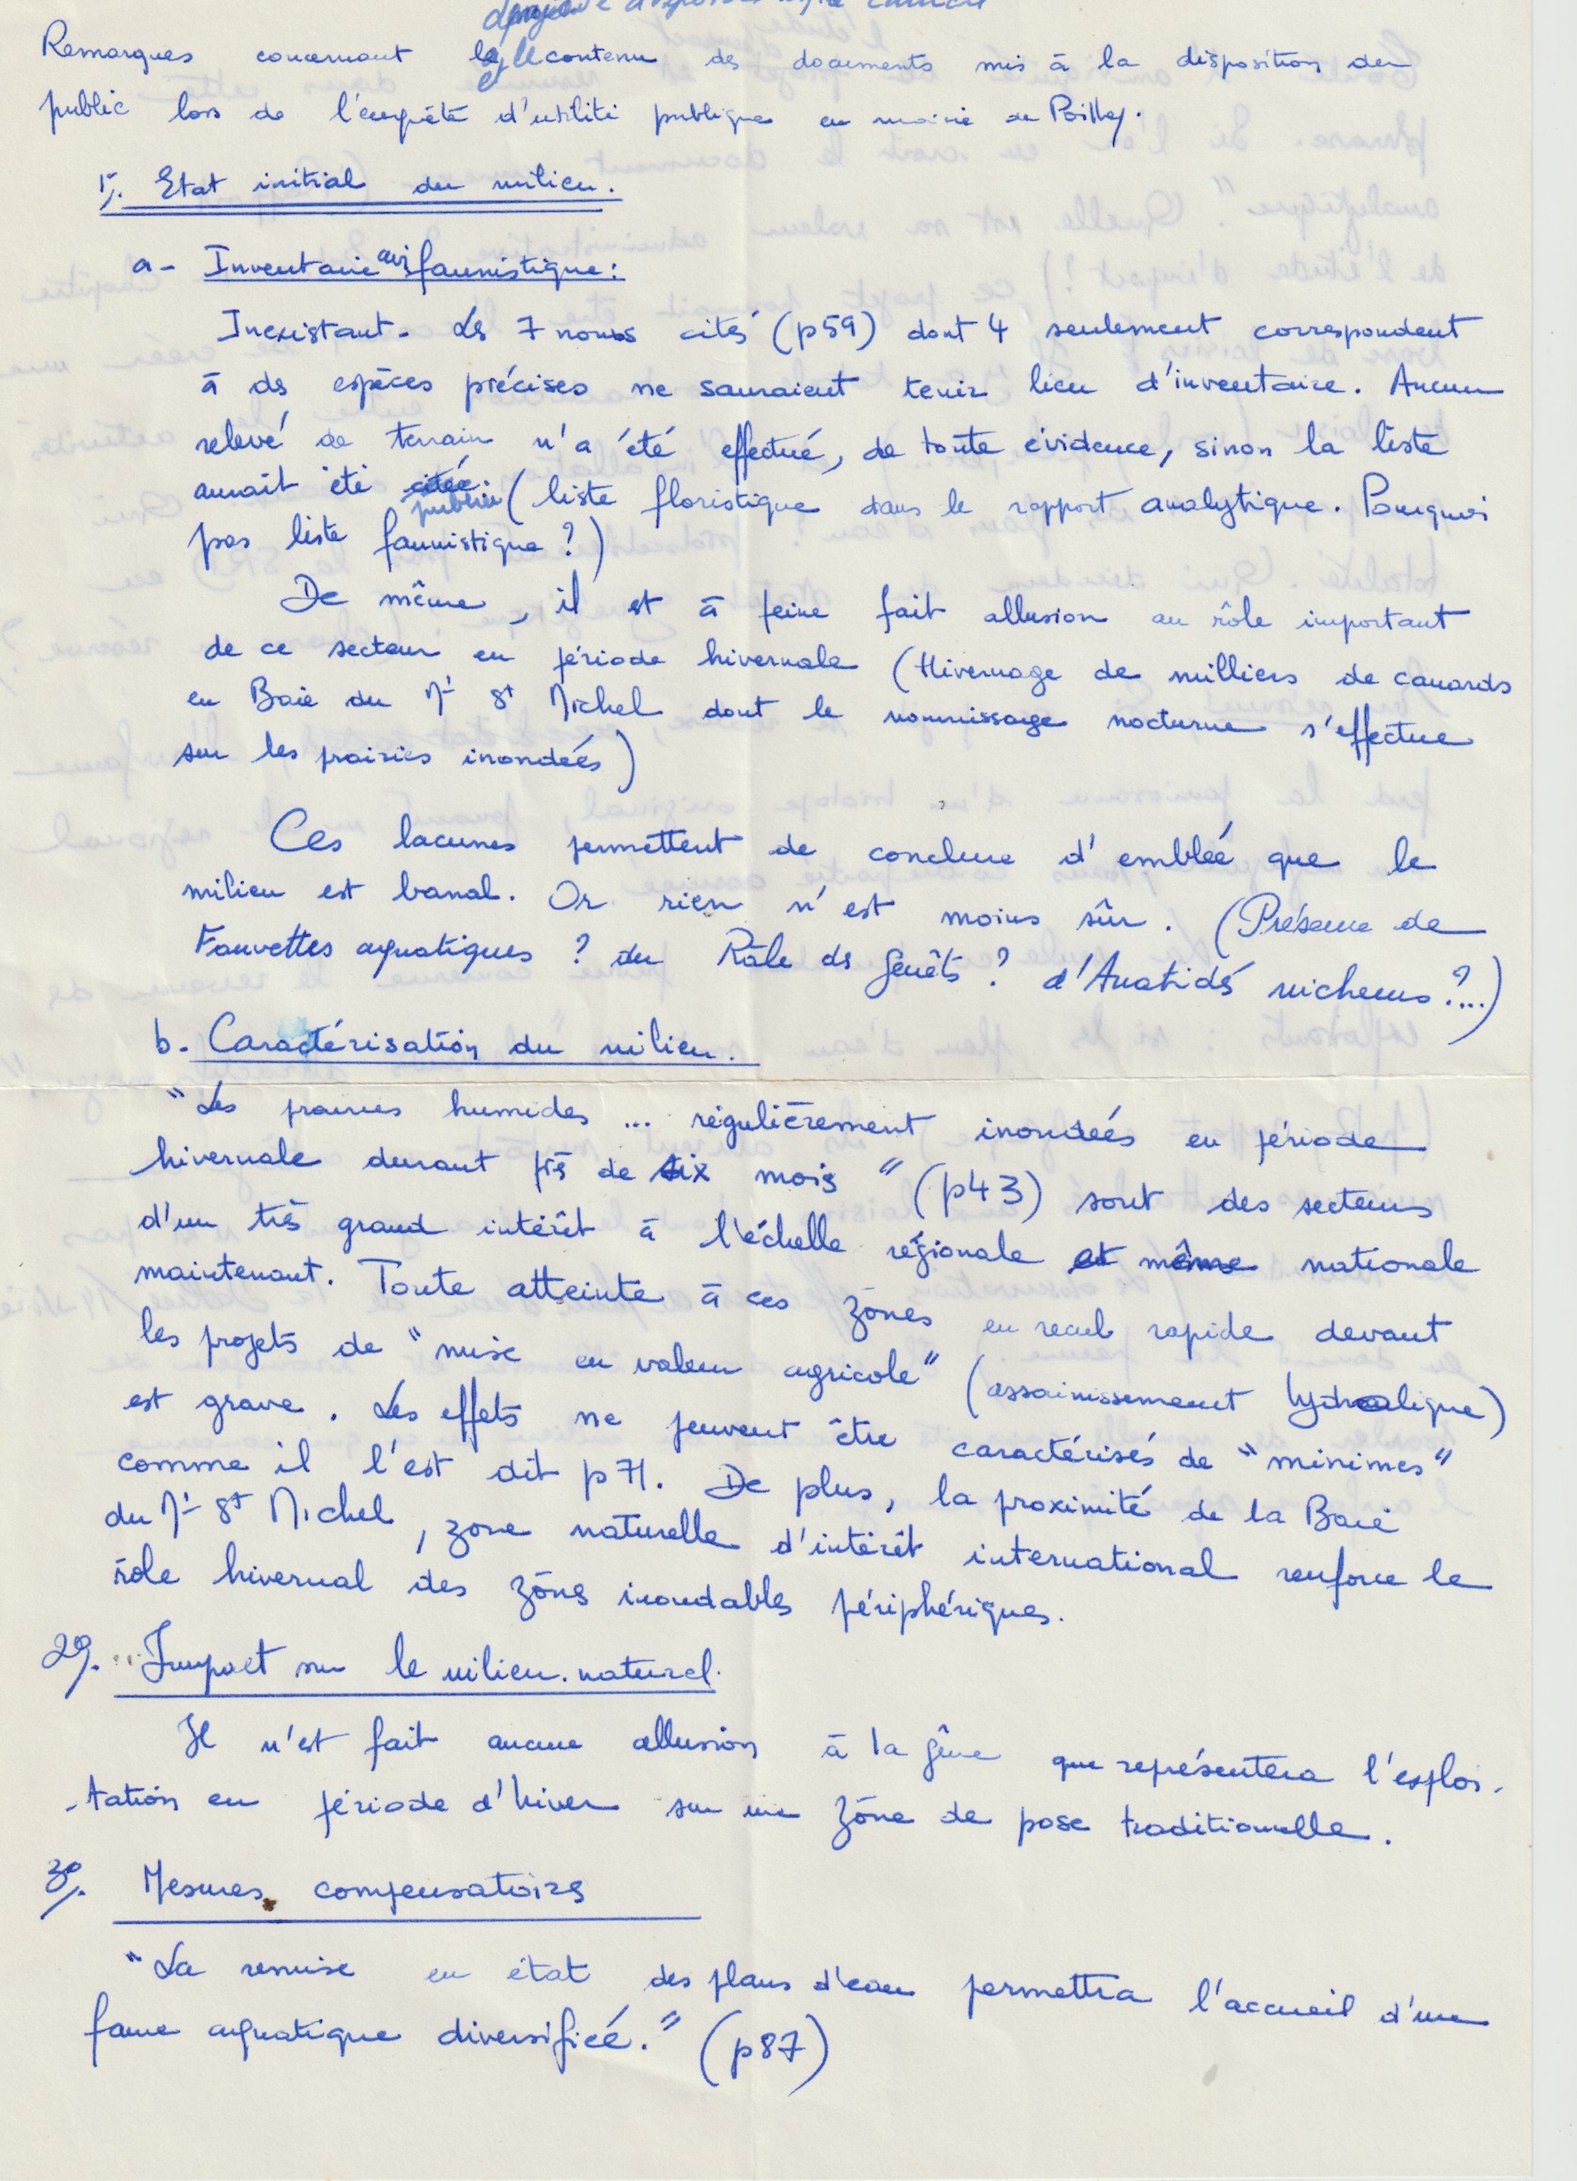 Remarques concernant le contenu des documents mis à la disposition du
public lors de l'enquête d'utilité publique en mairie de Poilley.
1°/. Etat initial du milieu.
a- Inventaire avifaunistique:
Inexistant. Les 7 noms cités (p59) dont 4 seulement correspondent
à des espèces précises ne sauraient tenir lieu d'inventaire. Aucun
relevé de terrain n'a été effectué, de toute évidence, sinon la liste
aurait été citée. publiée (liste floristique dans le rapport analytique. Pourquoi
pas liste faunistique ?)
De même, il est à peine fait allusion au rôle important
de ce secteur en période hivernale (Hivernage de milliers de canards
en Baie du Mt St Michel dont le nourrissage nocturne s'effectue
sur les prairies inondées)
Ces lacunes permettent de conclure d'emblée que le
milieu est banal. Or rien n'est moins sûr. (Présence de
Fauvettes aquatiques ? du Râle des genêts ? d'Anatidés nicheurs ?...)
b- Caractérisation du milieu.
"Les prairies humides ... régulièrement inondées en période
hivernale durant près de six mois" (p43) sont des secteurs
d'un très grand intérêt à l'échelle régionale et même nationale
maintenant. Toute atteinte à ces zônes en recul rapide devant
les projets de "mise en valeur agricole" (assainissement hydraulique)
est grave. Les effets ne peuvent être caractérisés de "minimes"
comme il l'est dit p71. De plus, la proximité de la Baie
du Mt St Michel, zone naturelle d'intérêt international renforce le
rôle hivernal des zônes inondables périphériques.
2°/. Impact sur le milieu naturel.
Il n'est fait aucune allusion à la gêne que représentera l'exploi-
-tation en période d'hiver sur une zône de pose traditionnelle.
3°/. Mesures compensatoires
"La remise en état des plans d'eau permettra l'accueil d'une
faune aquatique diversifiée." (p87)